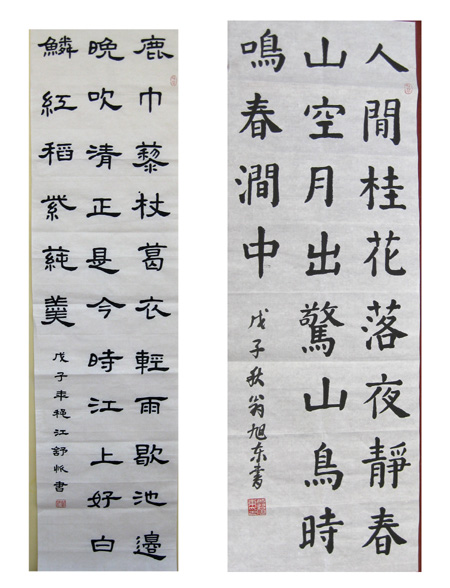 人閒桂花落夜靜春
山空月出驚山鳥時
鳴春澗中
戊子秋翁旭东書
鹿巾藜杖葛衣輕雨歇池邊
晚吹清正是今時江上好白
鱗紅稻紫蒓羹
戊子年江舒帆書